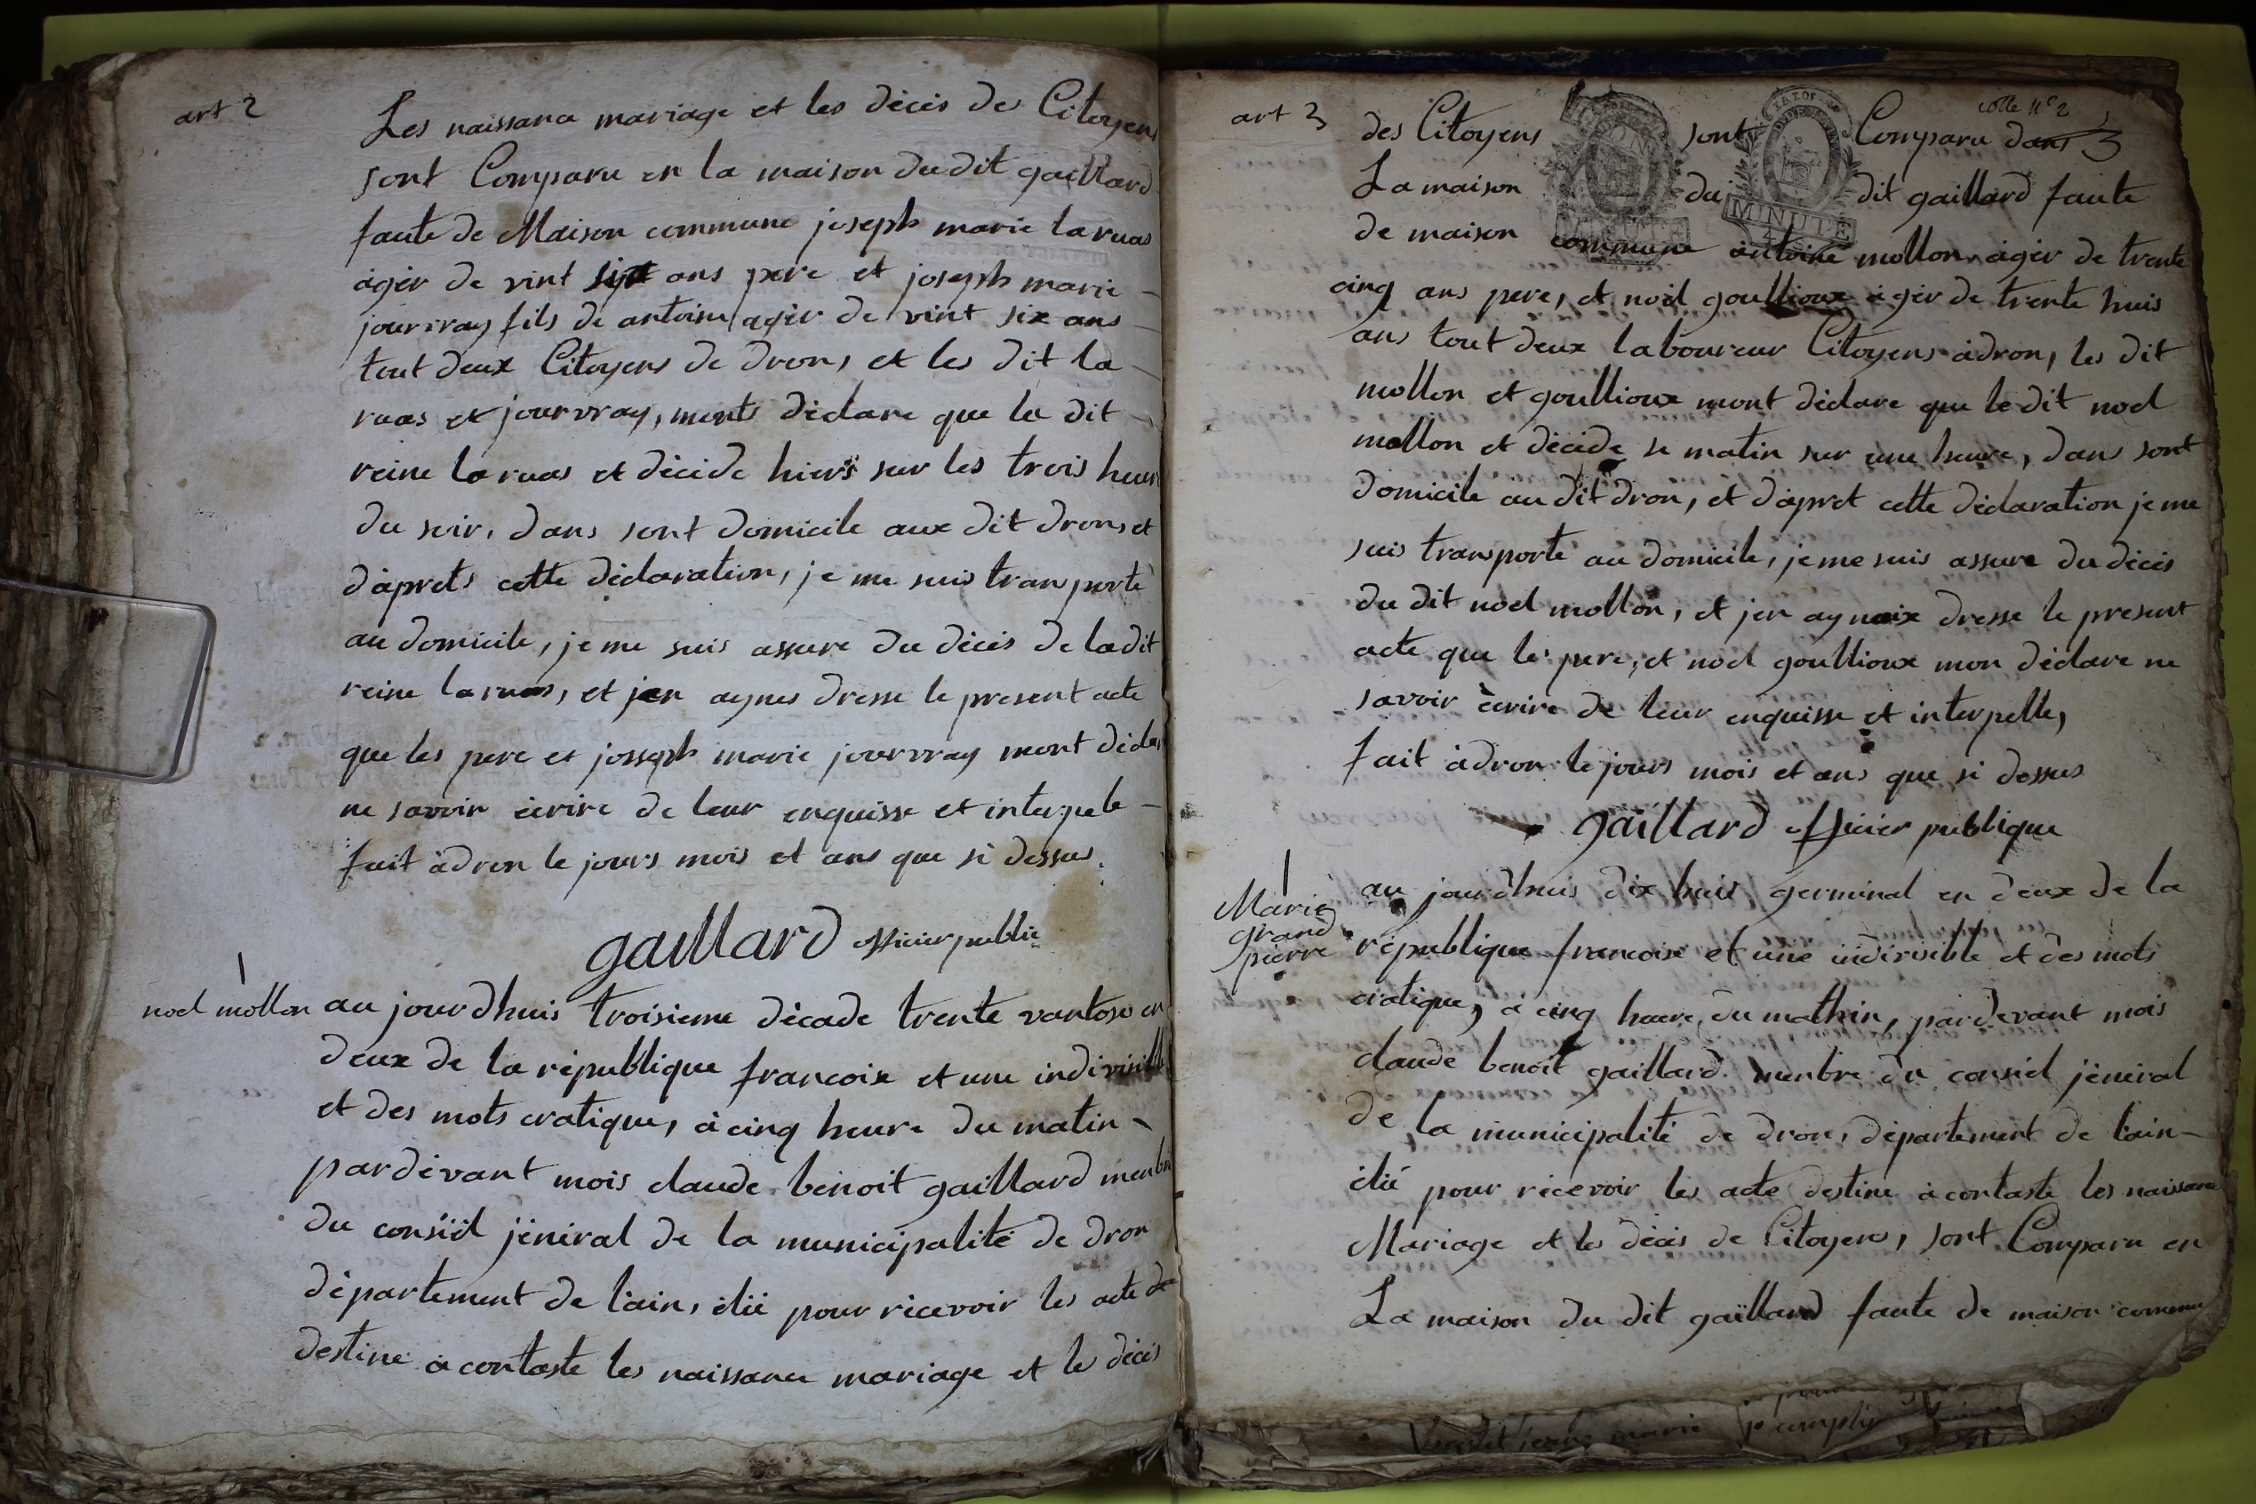 art 2
Les naissance mariage et les décès de Citoyens
sont Comparu en la maison du dit gaillard
faute de Maison commune joseph marie laruas
àgèr de vint sipt ans pere et joseph marie
jourvray fils de antoine àgèr de vint six ans
tout deux Citoyens de drons et les dit la
ruas et jourvray, monts déclare que la dit
reine laruas et décide hiers sur les trois heure
du soir, dans sont domicile aux dit drons et
d'àprets cette déclaration, je me suis tranporté
au domicile, je me suis assure du décès de la dit
reine laruas, et jen aynes dresse le present acte
que les pere et josseph marie jourvray mont décla
ne savoir écrire de leur enquisse et interpele
fait àdron le jours mois et ans que si dessus.
gaillard officier public
noel mollon
au jourdhuis troisieme décade trente vantose en
deux de la république francoise et une indivisible
et des mots cratique, à cinq heure du matin
pardevant mois claude benoit gaillard menbre
du consièl jénèral de la municipalité de dron
département de l'ain, élie pour ricevoir les acte de
destine à contaste les naissance mariage et le décès
art 3
cotte n° 2
des Citoyens sont Comparu dans 3
La maison du dit gaillard faute
MINUTE
de maison commune antoine mollon àgèr de trente
cinq ans pere, et noèl goullioux àgèr de trente huis
ans tout deux laboureur Citoyens àdron, les dit
mollon et goullioux mont déclare que le dit noel
mollon et décide se matin sur une heure, dans sont
domicile au dit dron, et d'àpret cette déclaration je me
suis transporte au domicile, je me suis assure du décès
du dit noel mollon, et jen ay dresse le present
acte que le pere, et noel goullioux mon déclare ne
savoir écrire de leur enquisse et interpelle,
fait àdron le jours mois et ans que si dessus
gaillard officier publique
Marie
grand
pierre
au jourdhuis dix huis germinal en deux de la
république francoise et une indivisible et des mots
cratique, à cinq heure du mathin, pardevant mois
claude benoit gaillard menbre du consièl jénèral
de la municipalité de dron, département de l'ain
élié pour ricevoir les acte destine à contaste les naissance
Mariage et les décès de Citoyens, sont Comparu en
La maison du dit gaillard faute de maison commu